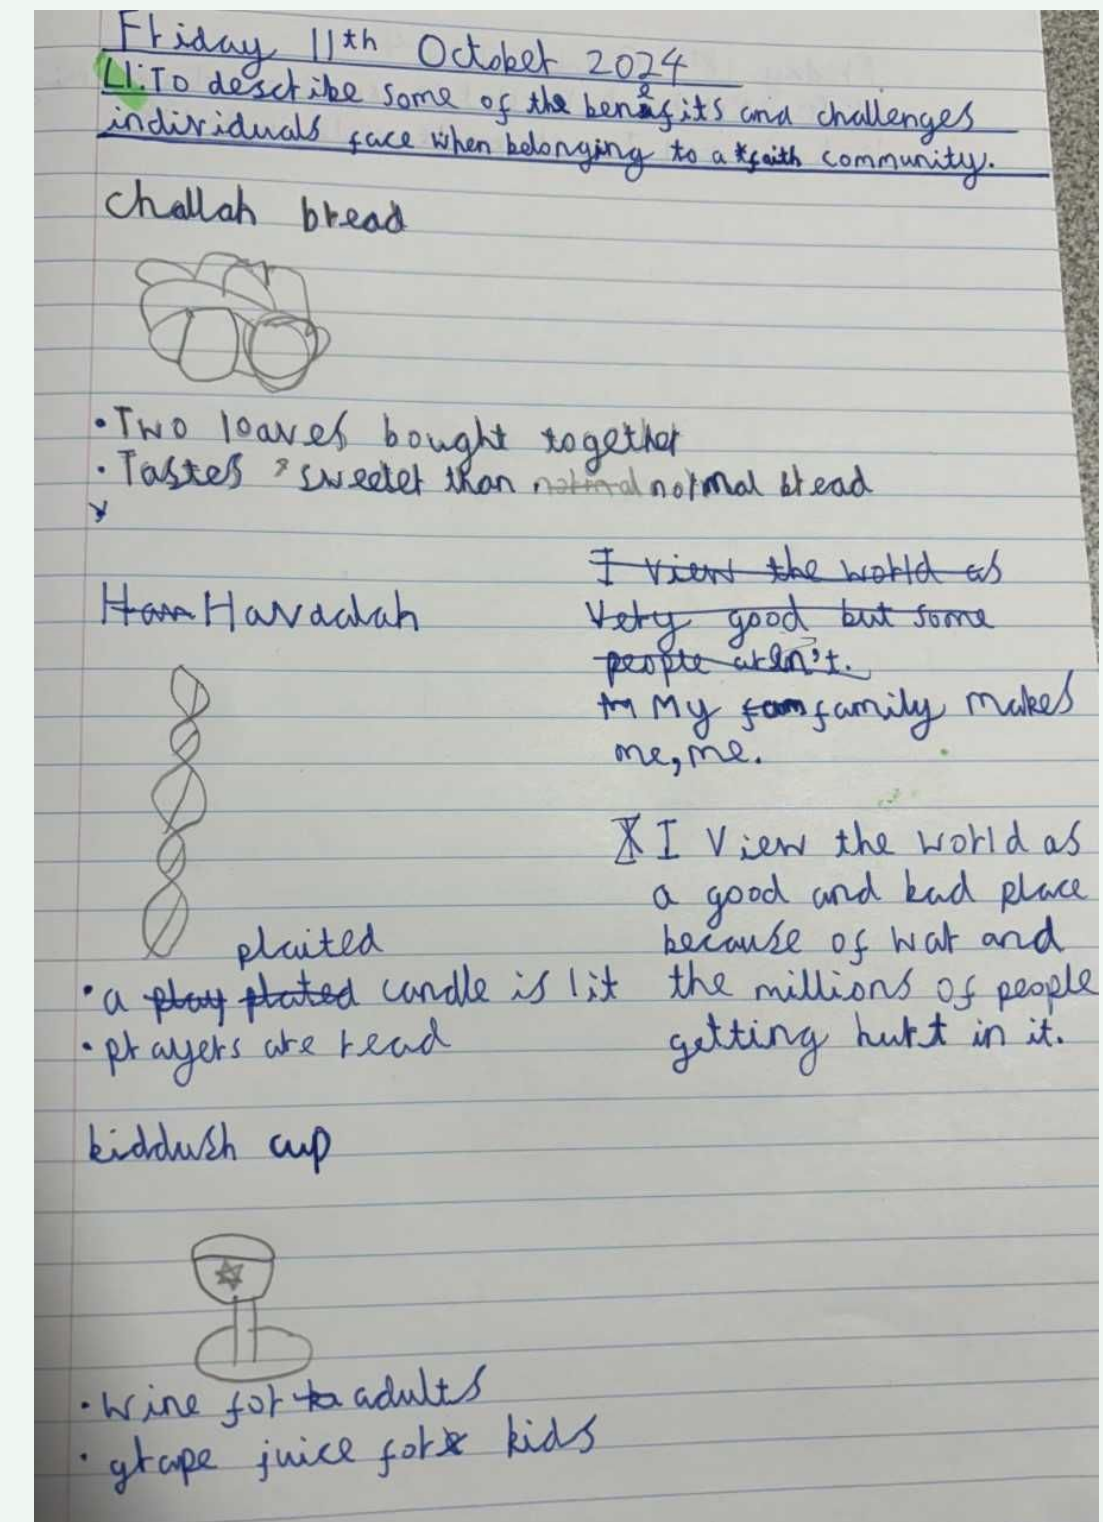 Friday 11th October 2024
LI: To describe some of the benefits and challenges
individuals face when belonging to a *faith community.
challah bread
• Two loaves bought together
• Tastes sweeter than normal normal bread
Ham Havadah
plaited
• a play plated candle is lit
• prayers are read
kiddush cup
• wine for adults
• grape juice for kids
I view the world as
very good but some
people aren't.
My fam family makes
me, me.
I view the world as
a good and bad place
because of war and
the millions of people
getting hurt in it.